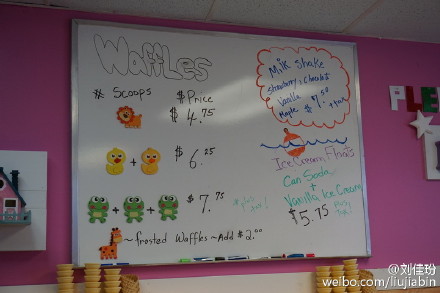 Waffles
# Scoops
$ Price
$ 4.75
+ $ 6.25
+ + $ 7.75
~ frosted Waffles ~ Add $2.00
Milk Shake
Strawberry, Chocolate
Vanilla
Maple $7.50
+ tax
Ice Cream Floats
Can Soda
+
Vanilla Ice Cream
$5.75
plus tax!
PLE
@刘佳玢
weibo.com/liujiabin